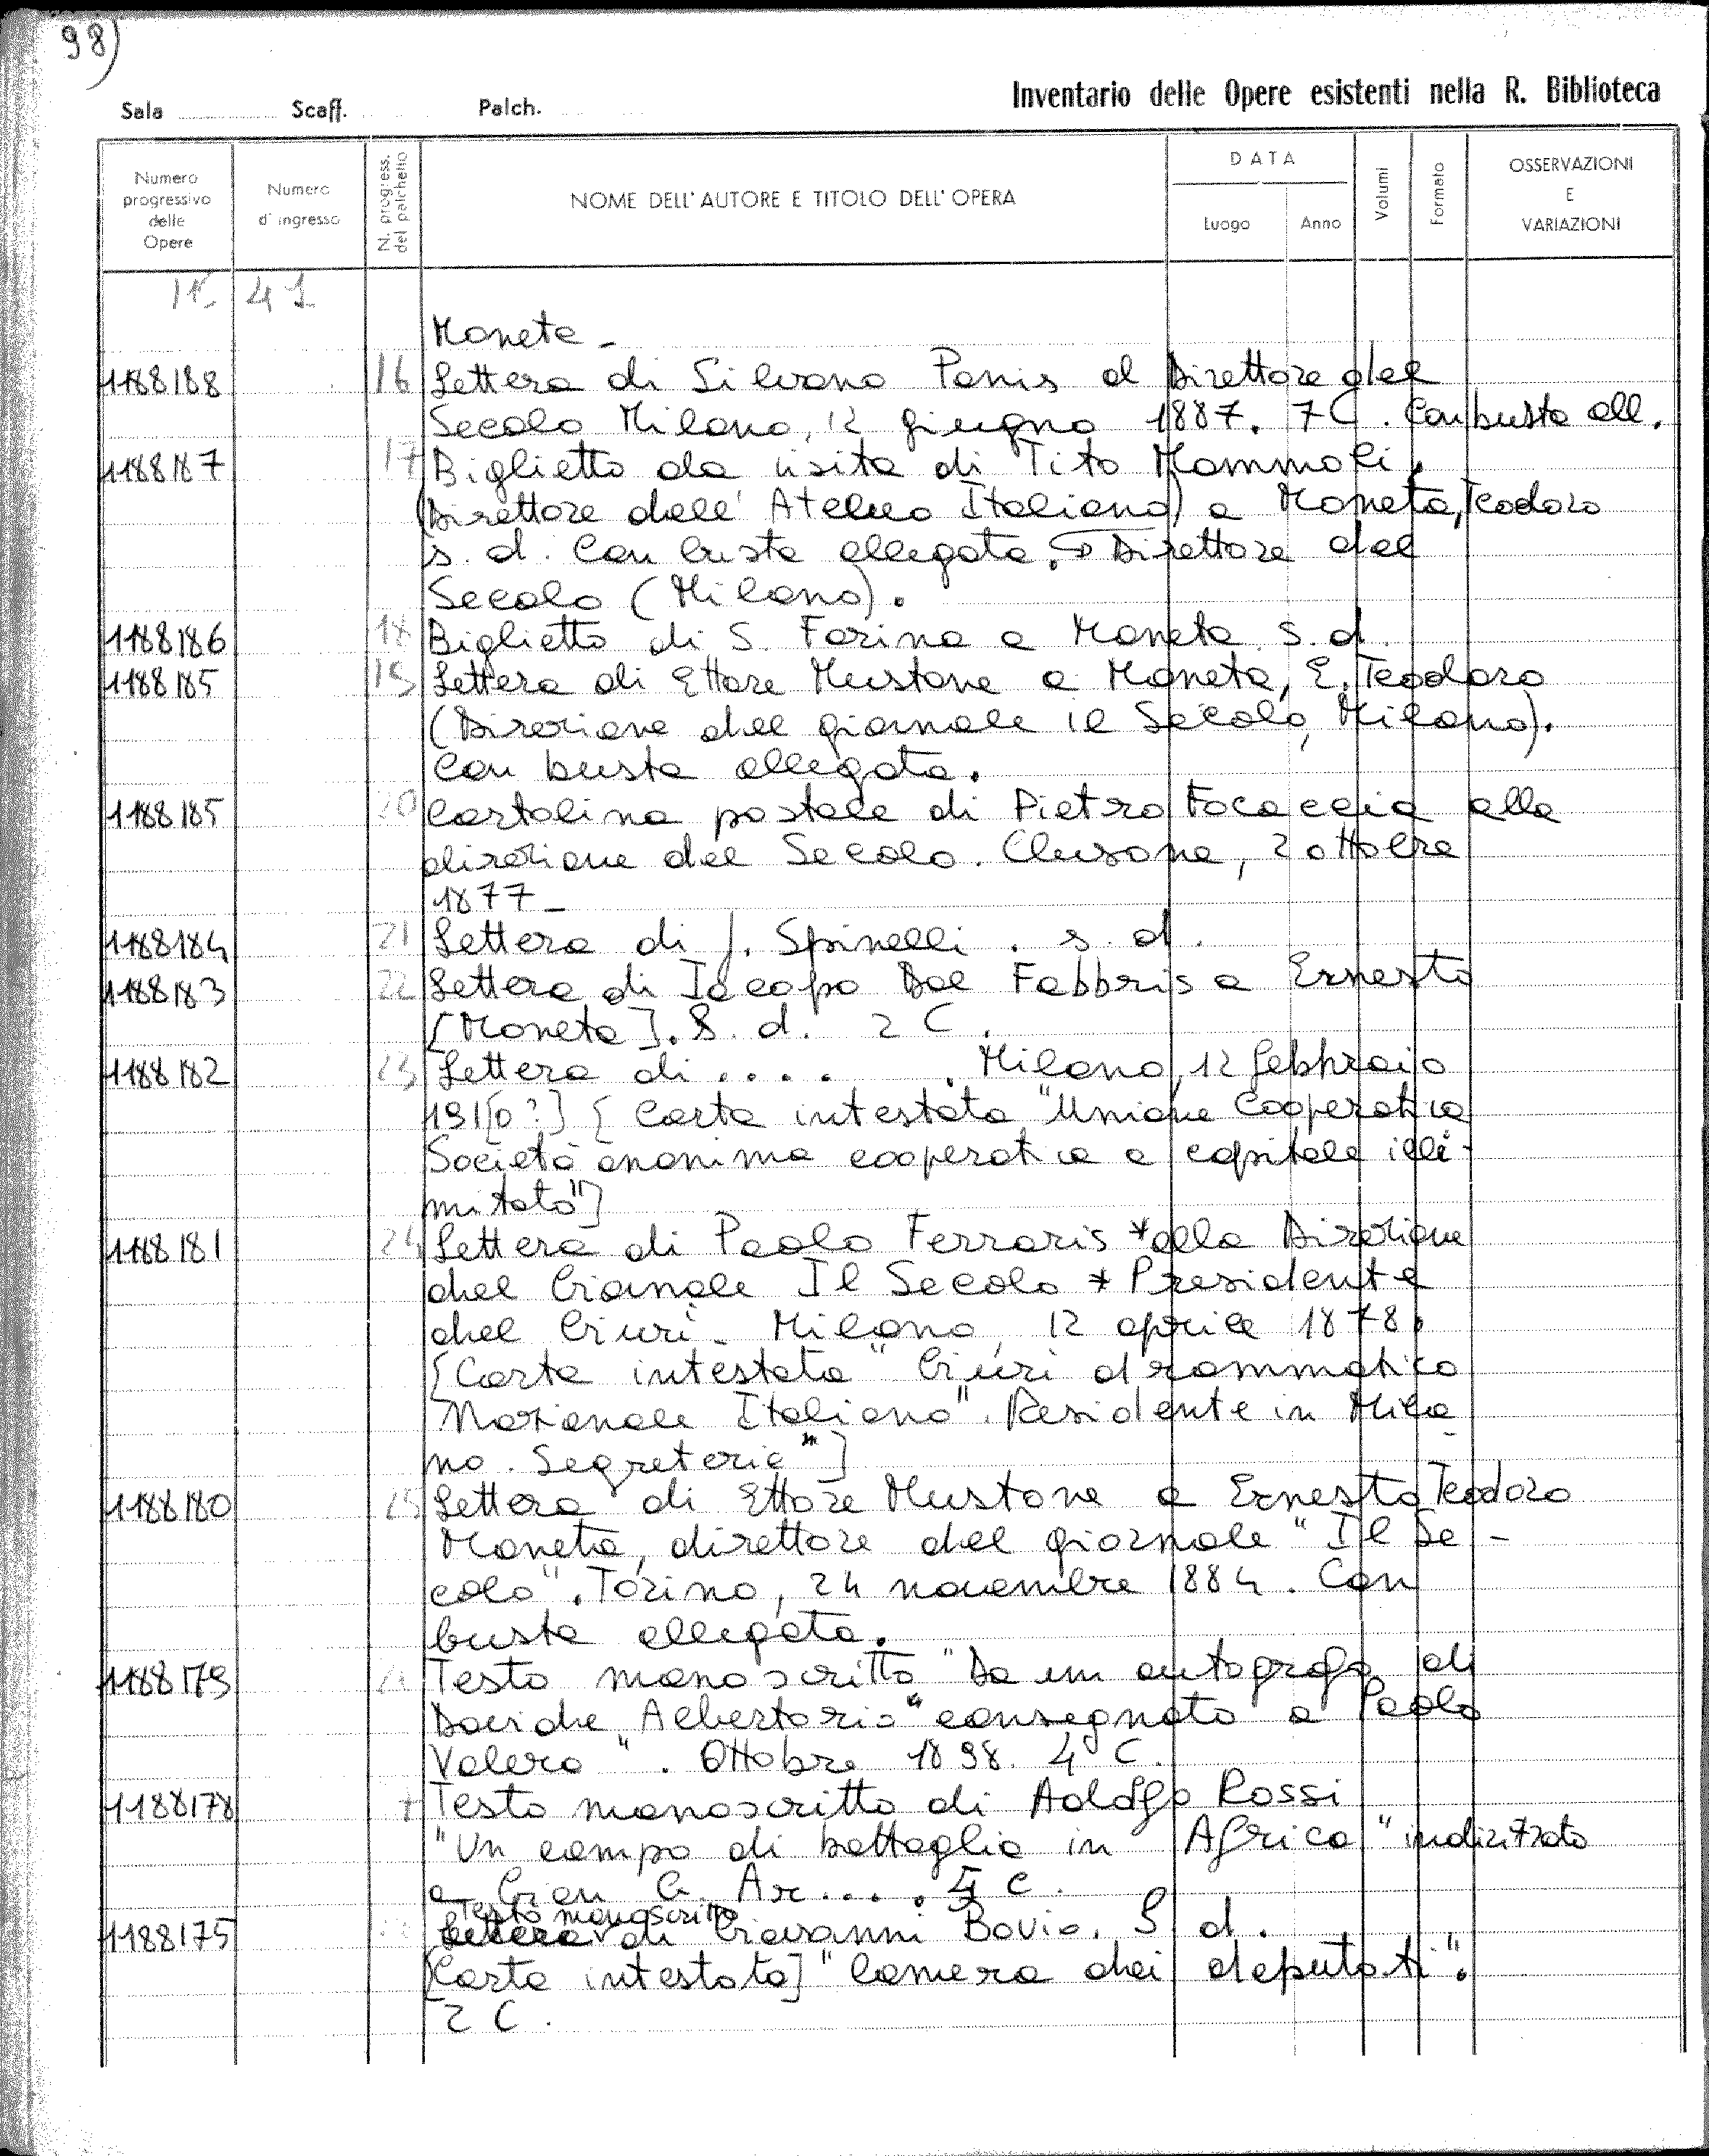 98)
Inventario delle Opere esistenti nella R. Biblioteca
Sala Scaff. Palch.
Numero progressivo delle Opere
Numero d'ingresso
N. progress. del palchetto
NOME DELL'AUTORE E TITOLO DELL'OPERA
DATA
Luogo
Anno
Volumi
Formato
OSSERVAZIONI E VARIAZIONI
41
Moneta -
1188188 16 Lettera di Silvano Panis al Direttore del
Secolo Milano, 12 giugno 1887. 7 C. Con busta all.
1188187 17 Biglietto da visita di Tito Mammoli,
(Direttore dell' Ateneo Italiano) a Moneta, Teodoro
s. d. Con busta allegata. Direttore del
Secolo (Milano).
1188186 18 Biglietto di S. Farina a Moneta s. d.
1188185 19 Lettera di Ettore Mustone a Moneta, E. Teodoro
(Direzione del giornale il Secolo, Milano).
Con busta allegata.
1188185 20 Cartolina postale di Pietro Focaccia alla
direzione del Secolo. Clusone, 2 ottobre
1877 -
1188184 21 Lettera di J. Spinelli . s. d.
1188183 22 Lettera di Iacopo Dal Fabbris a Ernesto
[Moneta]. S. d. 2 C.
1188182 23 Lettera di .... . Milano, 12 febbraio
191[0?] [Carta intestata "Unione Cooperativa
Società anonima cooperativa a capitale illi-
mitato"]
1188181 24 Lettera di Paolo Ferraris *alla Direzione
del Giornale Il Secolo * Presidente
del Giurì. Milano, 12 aprile 1878.
[Carta intestata "Giurì drammatico
Nazionale Italiano". Residente in Mila-
no. Segreteria"]
1188180 25 Lettera di Ettore Mustone a Ernesto Teodoro
Moneta, direttore del giornale "Il Se-
colo". Torino, 24 novembre 1884. Con
busta allegata.
1188179 Testo manoscritto "Da un autografo di
Davide Albertario" consegnato a Paolo
Valera". Ottobre 1898. 4 C.
1188178 Testo manoscritto di Adolfo Rossi
"Un campo di battaglia in Africa" indirizzato
a Gian G. Ar.... C.
Testo manoscritto
1188175 Lettera di Giovanni Bovio. S. d.
[Carta intestata] "Camera dei deputati".
2 C.